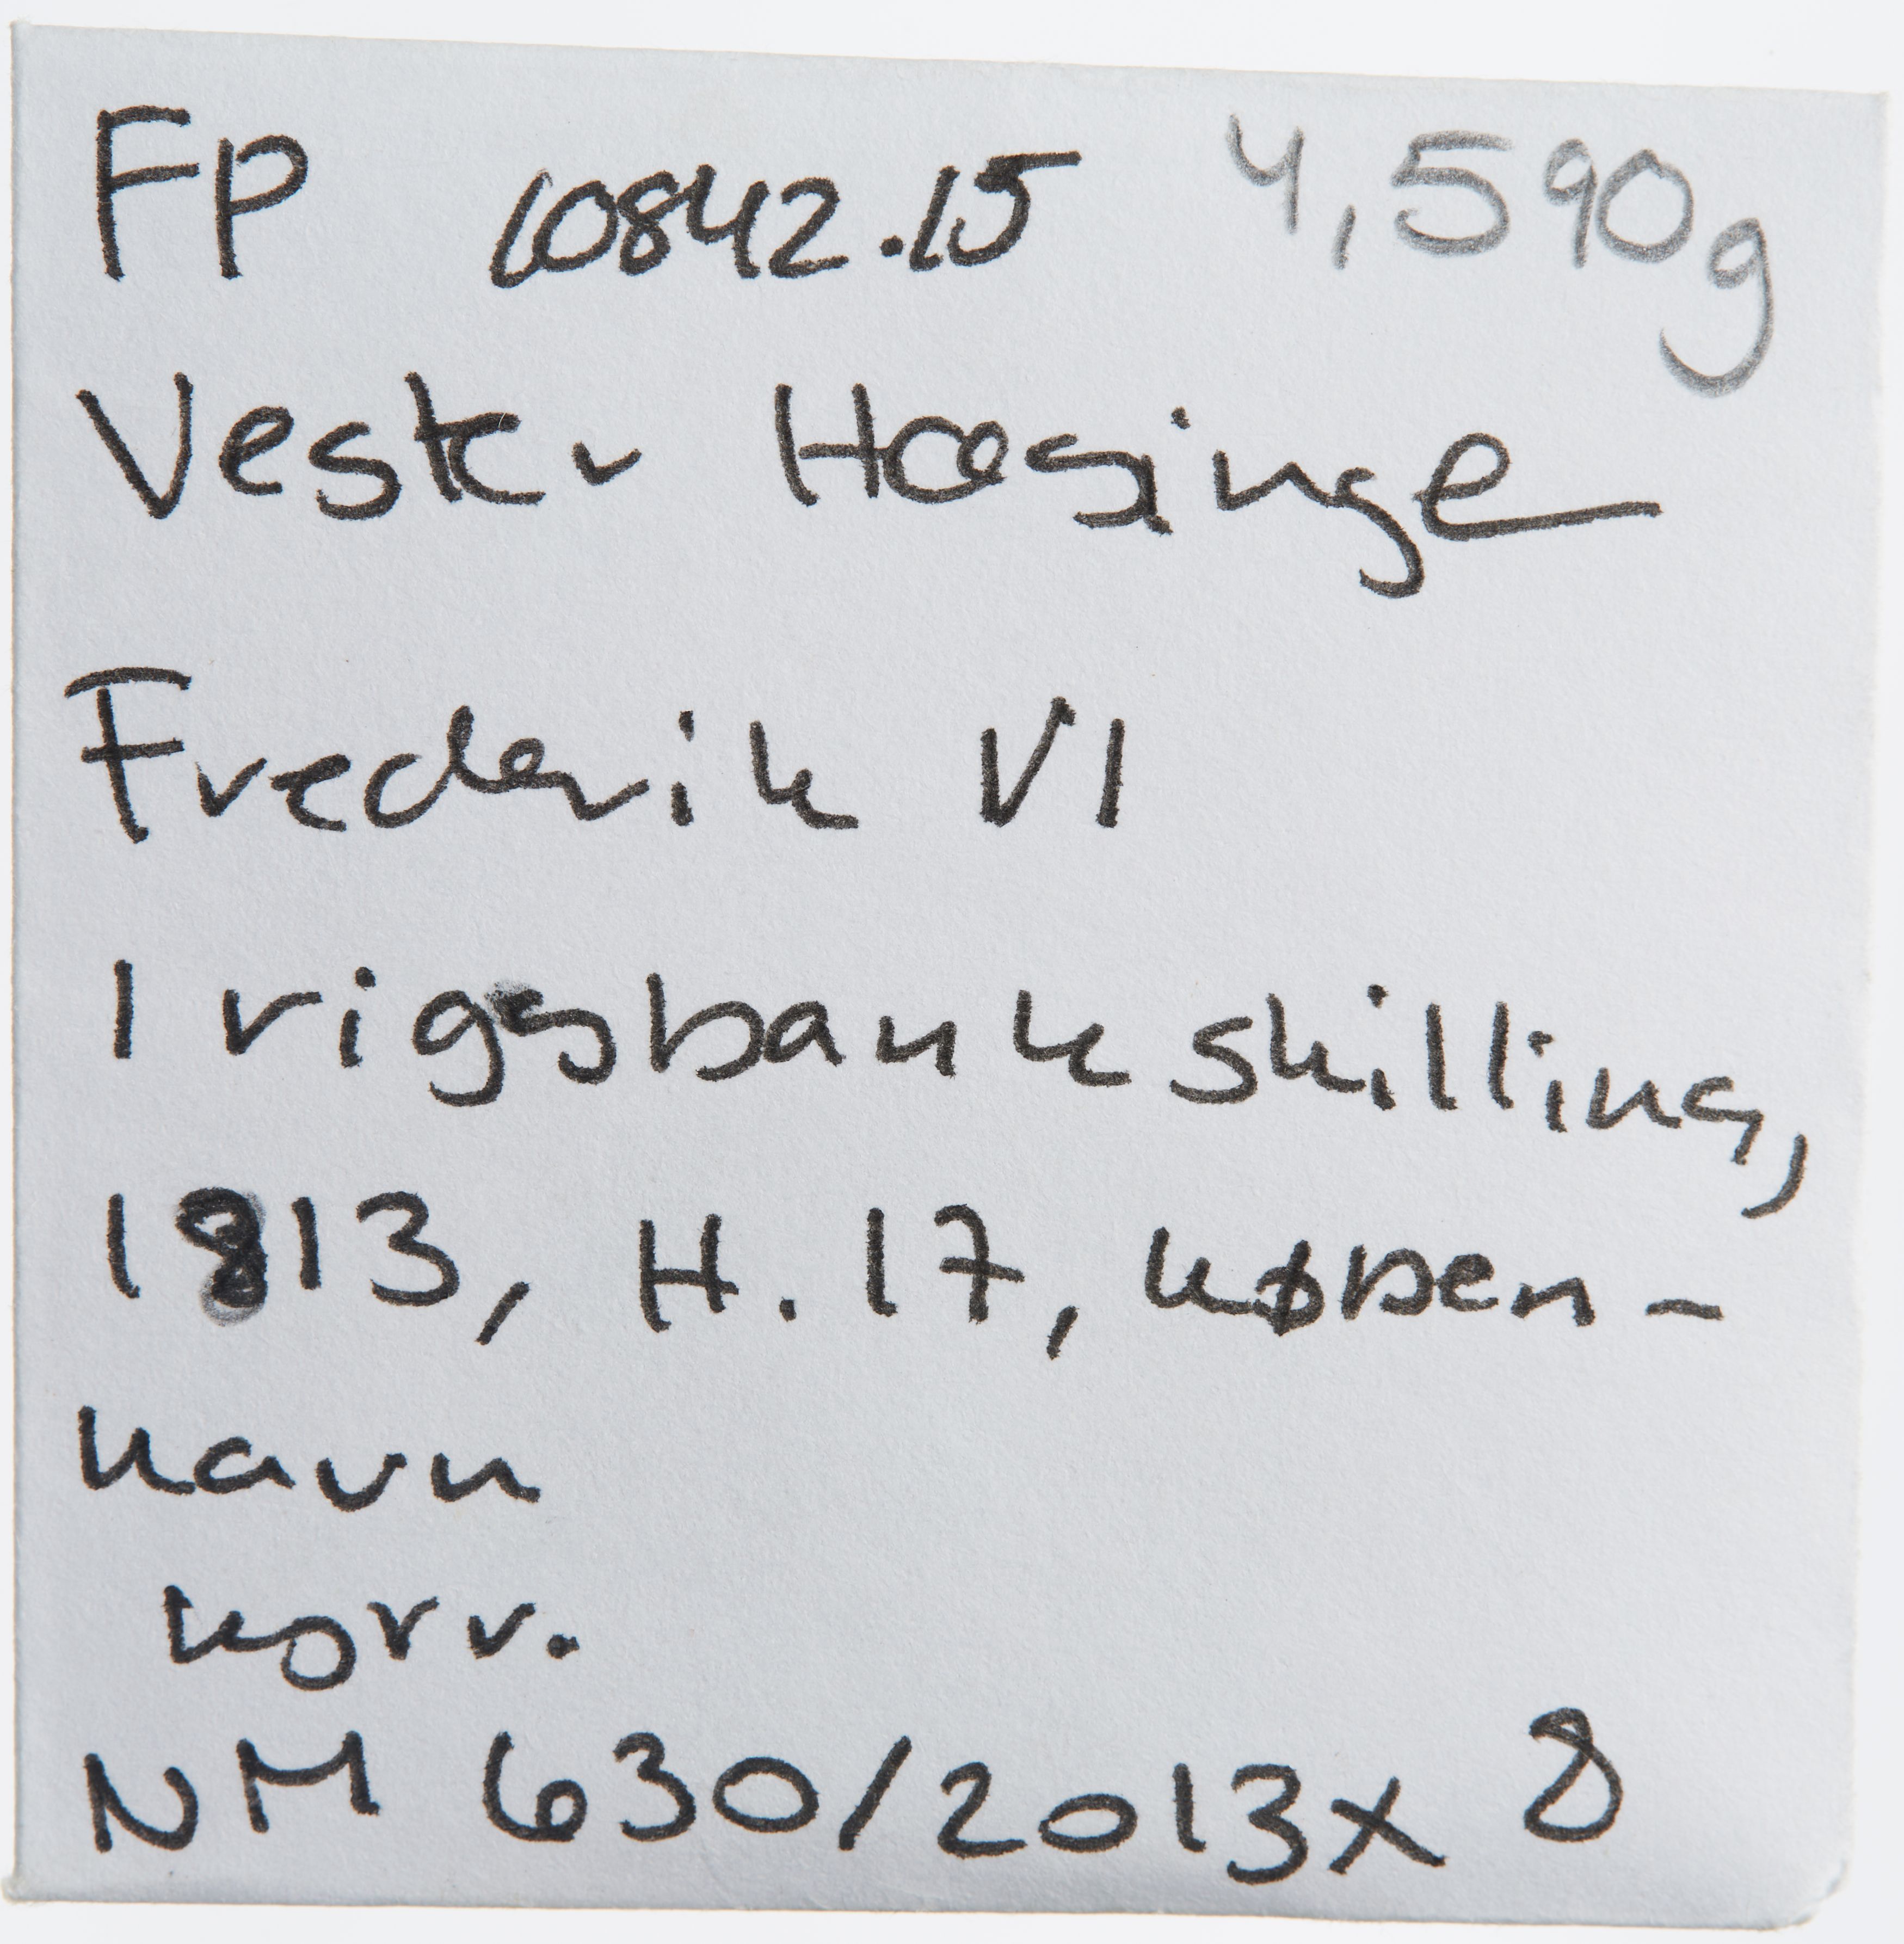 FP 10842.15 4,590g
Vester Hæsinge
Frederik VI
1 rigsbankskilling,
1813, H. 17, Køben-
havn
korr.
NM 630/2013x 8